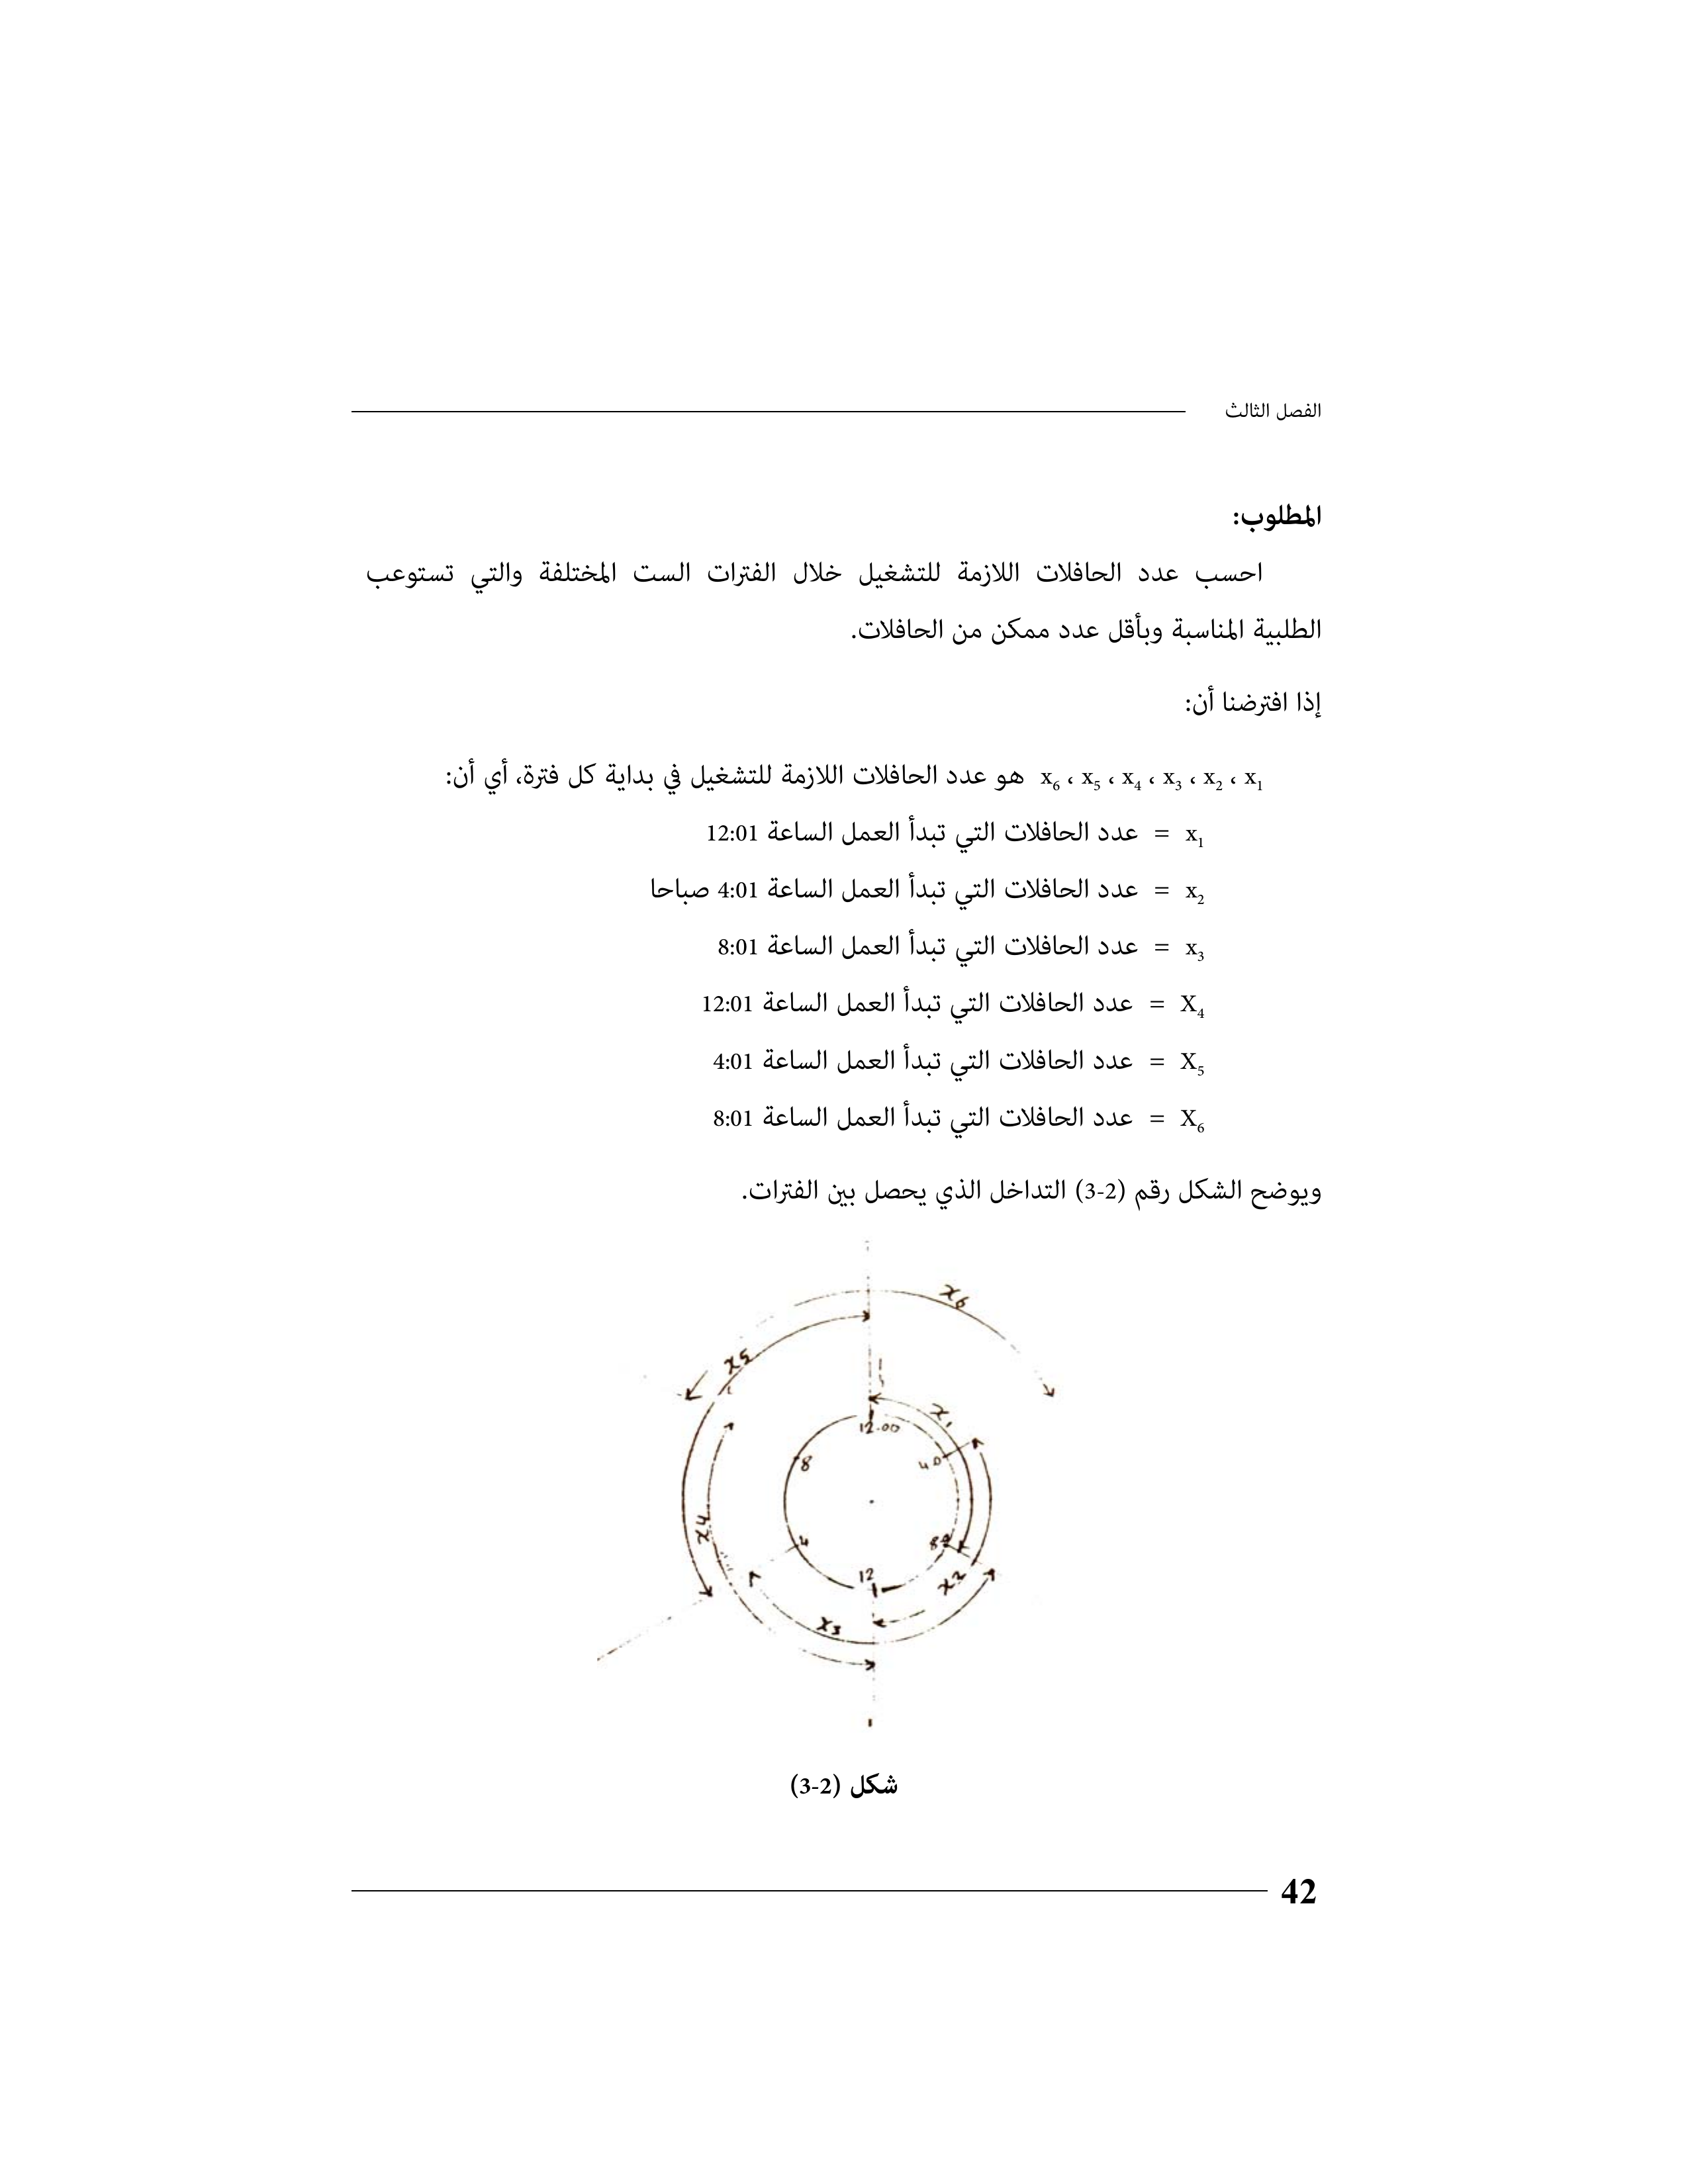 الفصل الثالث
المطلوب:
احسب عدد الحافلات اللازمة للتشغيل خلال الفترات الست المختلفة والتي تستوعب
الطلبية المناسبة وبأقل عدد ممكن من الحافلات.
إذا افترضنا أن:
x₁ ، x₂ ، x₃ ، x₄ ، x₅ ، x₆ هو عدد الحافلات اللازمة للتشغيل في بداية كل فترة، أي أن:
x₁ = عدد الحافلات التي تبدأ العمل الساعة 12:01
x₂ = عدد الحافلات التي تبدأ العمل الساعة 4:01 صباحا
x₃ = عدد الحافلات التي تبدأ العمل الساعة 8:01
X₄ = عدد الحافلات التي تبدأ العمل الساعة 12:01
X₅ = عدد الحافلات التي تبدأ العمل الساعة 4:01
X₆ = عدد الحافلات التي تبدأ العمل الساعة 8:01
ويوضح الشكل رقم (2-3) التداخل الذي يحصل بين الفترات.
x6
x5
x1
12.00
8
4
x4
4
8
12
x2
x3
شكل (2-3)
42